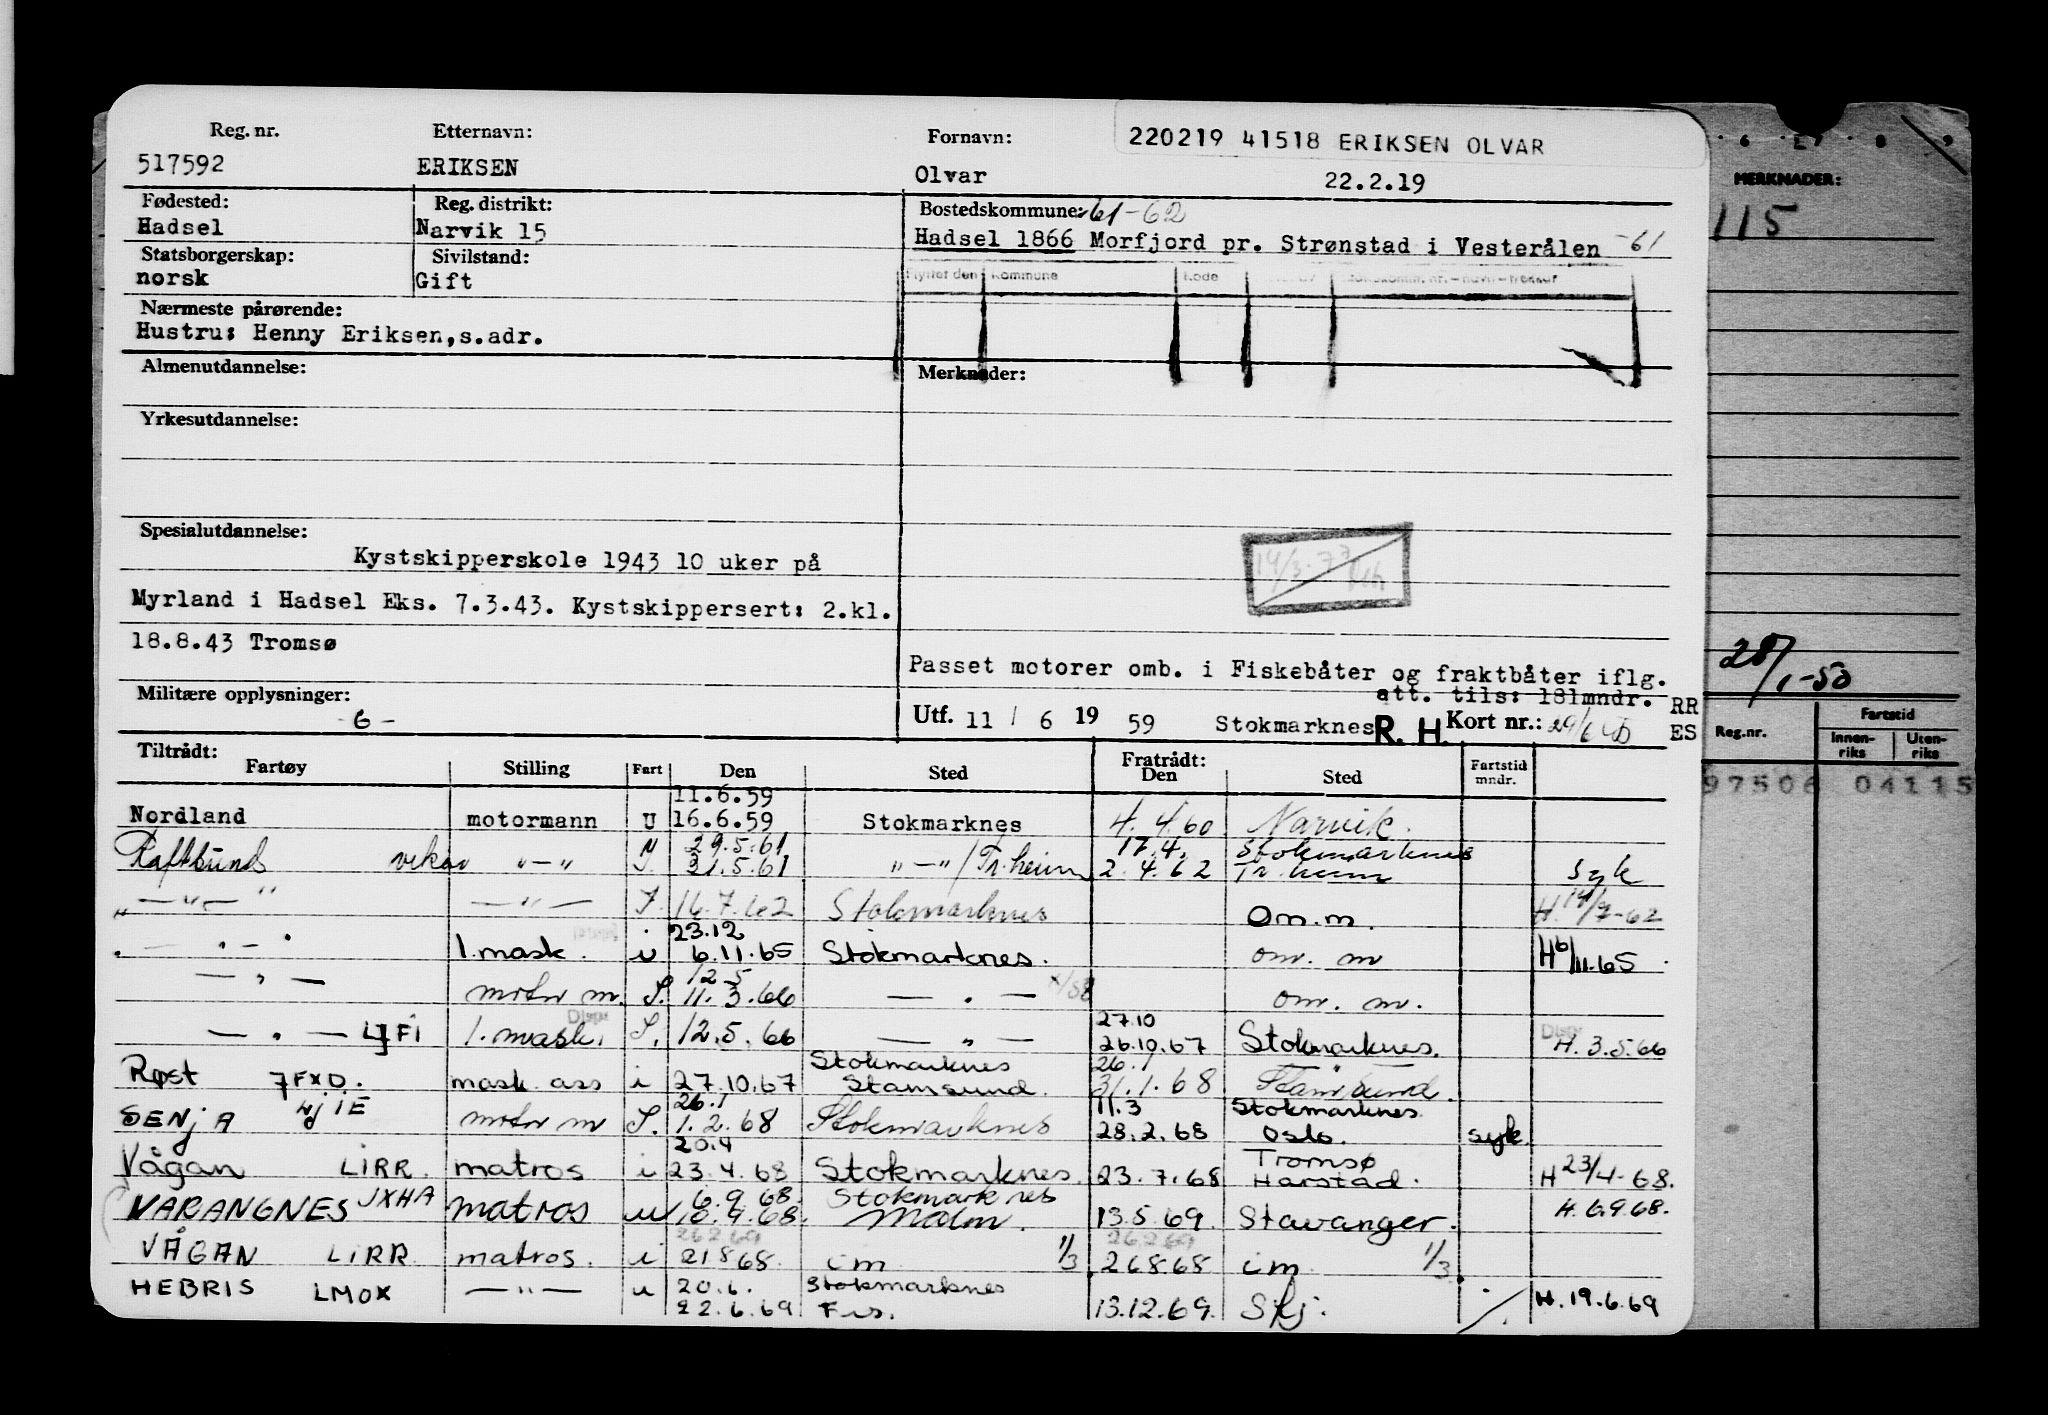 Reg. nr. Etternavn: Fornavn: 220219 41518 ERIKSEN OLVAR
517592 ERIKSEN Olvar 22.2.19
Fødested: Reg. distrikt: Bostedskommune: 61-62
Hadsel Narvik 15 Hadsel 1866 Morfjord pr. Strønstad i Vesterålen -61
Statsborgerskap: Sivilstand: Flyttet den Kommune Kode
norsk Gift
Nærmeste pårørende:
Hustru: Henny Eriksen,s.adr.
Almenutdannelse: Merknader:
Yrkesutdannelse:
Spesialutdannelse:
Kystskipperskole 1943 10 uker på
Myrland i Hadsel Eks. 7.3.43. Kystskippersert: 2.kl.
18.8.43 Tromsø
14/3-77
Passet motorer omb. i Fiskebåter og fraktbåter iflg.
att. tils: 181mndr. RR
Militære opplysninger:
-6-
Utf. 11 / 6 19 59 Stokmarknes R. H. Kort nr.: ES
Tiltrådt: Fratrådt:
Fartøy Stilling Fart Den Sted Den Sted Fartstid mndr.
11.6.59
Nordland motormann U 16.6.59 Stokmarknes 4.4.60 Narvik.
29.5.61 17.4. Stokmarknes
Raftsund vikar "-" 21.5.61 "-"/Tr.heim 2.4.62 Tr.heim Syk
"-"-" -"- 16.7.62 Stokmarknes om.m. H. 14/7-62
23.12
-"- 1.mask. u 6.11.65 Stokmarknes. om. m H 6/11.65
12.5
-"- motor m. 11.3.66 -"- om. m.
27.10
-"- LJFI 1.mask. 12.5.66 -"- 26.10.67 Stokmarknes. H. 3.5.66
Stokmarknes 26.1
Røst JFXD. mask ass i 27.10.67 Stamsund. 31.1.68 Stamsund.
26.1 11.3 Stokmarknes
SENJA LJIE motor m 1.2.68 Stokmarknes 28.2.68 Oslo. syk.
20.4 Tromsø
Vågan LIRR. matros i 23.4.68 Stokmarknes 23.7.68 Harstad. H 23/4-68.
6.9.68. Stokmarknes
VARANGNES JXHA matros u 10.9.68. Malm. 13.5.69. Stavanger. H. 6.9.68.
26.2.69 26.2.69
VÅGAN LIRR matros. i 21868. im 1/3 26868 im 1/3
20.6. Stokmarknes
HEBRIS LMOX -"- u 22.6.69 Fis. 13.12.69. Skj. H. 19.6.69
6 8 9
MERKNADER:
115
28/1-50
Reg.nr. Fartstid
Innenriks Utenriks
97506 04115